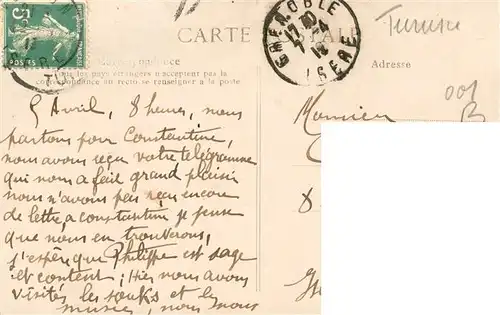 5
POSTES
GRENOBLE
ISERE
Tunisie
CARTE POSTALE
Correspondance
Tous les pays étrangers n'acceptent pas la
correspondance au recto se renseigner à la poste
Adresse
001
B
5 Avril, 8 heures, nous
partons pour Constantine,
nous avons reçu votre télégramme
qui nous a fait grand plaisir
nous n'avons pas reçu encore
de lettre, a constantine je pense
que nous en trouverons,
j'espère que Philippe est sage
et content ; Hier nous avons
visités les souks et le
musée, nous nous
Monsieur